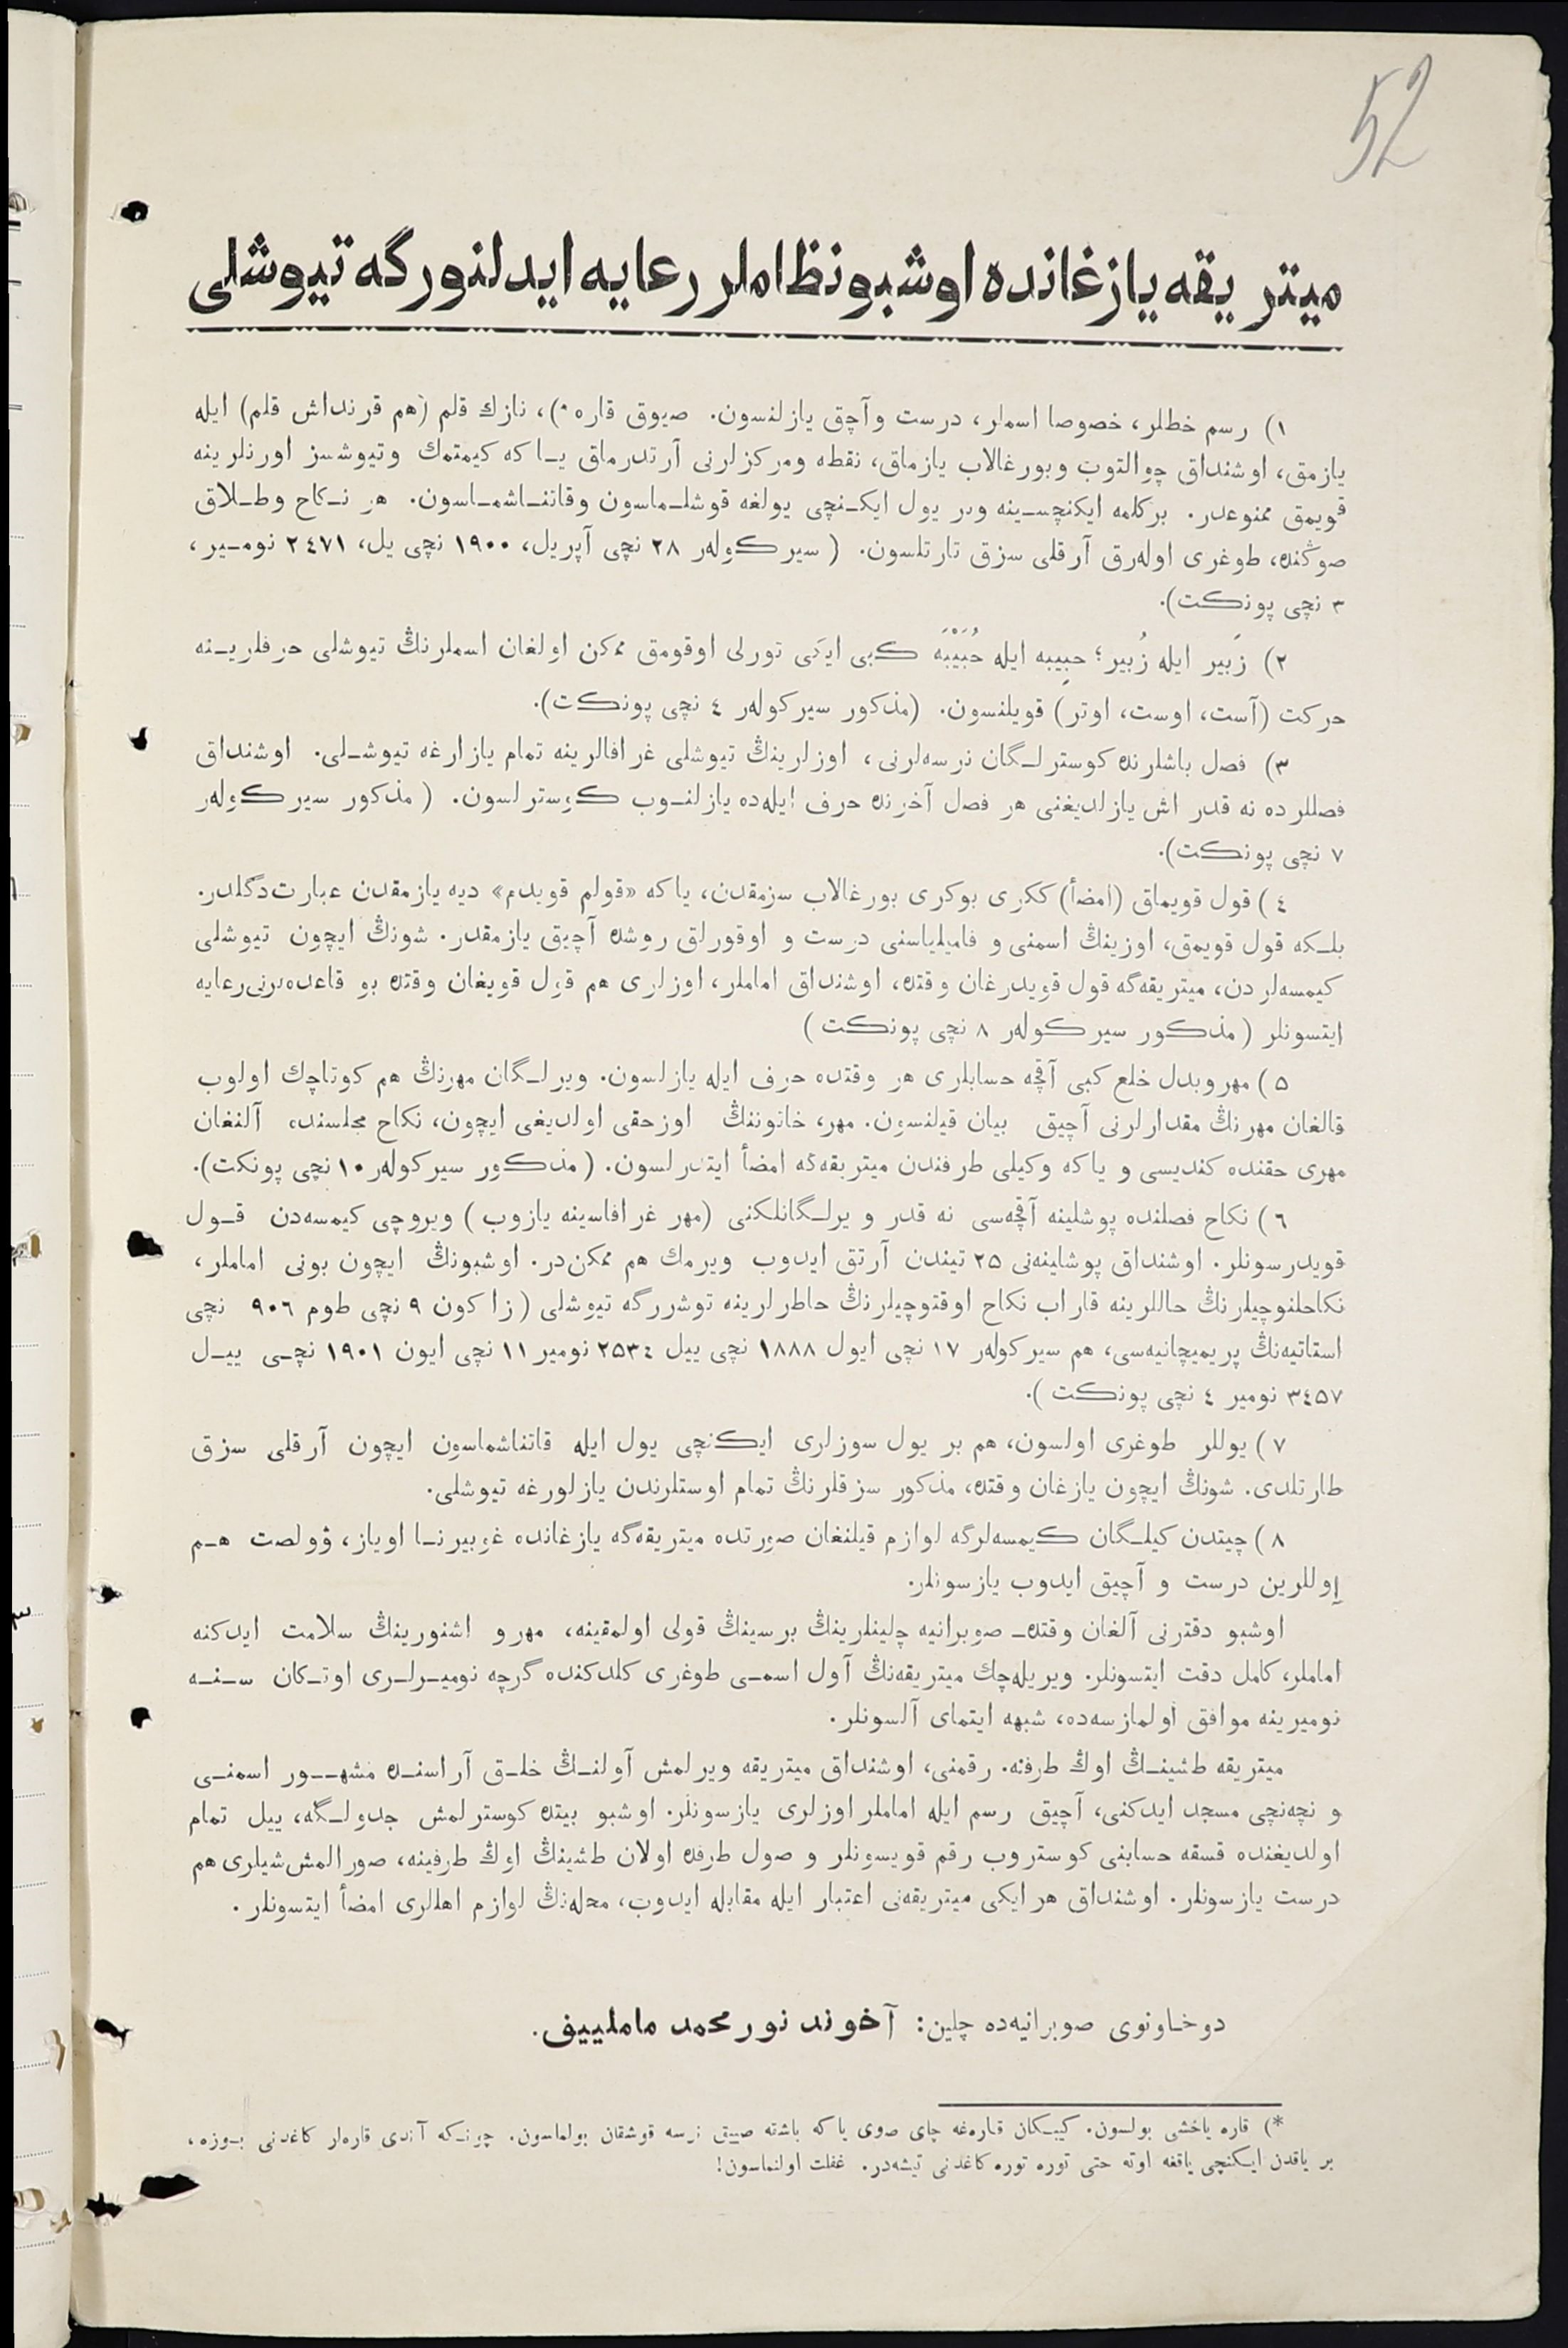 52
ميتريقه يازغانده اوشبو نظاملر رعايه ايدلنورگه تيوشلى
١) رسم خطلر، خصوصا اسملر، درست وآچق يازلنسون. صيوق قاره *)، نازك قلم (هم قرنداش قلم) ايله
يازمق، اوشنداق چوالتوب وبورغالاب يازماق، نقطه ومركزلرنى آرتدرماق يـا كه كيمتمك وتيوشسز اورنلرينه
قويمق ممنوعدر. بركلمه ايكنچسـينه وبر يول ايكـنچى يولغه قوشلـماسون وقاتنـاشمـاسون. هر نـكاح وطـلاق
صوڭنده، طوغرى اولهرق آرقلى سزق تارتلسون. (سيركولهر ٢٨ نچى آپريل، ١٩٠٠ نچى يل، ٢٤٧١ نومـير،
٣ نچى پونكت).
٢) زَبير ايله زُبير؛ حبِيبه ايله حُبَيْبَه كبى ايكى تورلى اوقومق ممكن اولغان اسملرنڭ تيوشلى حرفلريـنه
حركت (آست، اوست، اوتر) قويلنسون. (مذكور سيركولهر ٤ نچى پونكت).
٣) فصل باشلرنده كوسترلـگان نرسهلرنى، اوزلرينڭ تيوشلى غرافالرينه تمام يازارغه تيوشـلى. اوشنداق
فصللرده نه قدر اش يازلديغنى هر فصل آخرنده حرف ايلهده يازلنـوب كوسترلسون. (مذكور سيركولهر
٧ نچى پونكت).
٤) قول قويماق (امضأ) ككرى بوكرى بورغالاب سزمقدن، ياكه «قولم قويدم» ديه يازمقدن عبارت دگلدر.
بلـكه قول قويمق، اوزينڭ اسمنى و فاميلياسنى درست و اوقورلق روشده آچيق يازمقدر. شونڭ ايچون تيوشلى
كيمسهلردن، ميتريقهگه قول قويدرغان وقتده، اوشنداق اماملر، اوزلرى هم قول قويغان وقتده بو قاعدهلرنى رعايه
ايتسونلر (مذكور سيركولهر ٨ نچى پونكت)
٥) مهروبدل خلع كبى آقچه حسابلرى هر وقتده حرف ايله يازلسون. ويرلـگان مهرنڭ هم كوتاچك اولوب
قالغان مهرنڭ مقدارلرنى آچيق بيان قيلنسون. مهر، خاتوننڭ اوزحقى اولديغى ايچون، نكاح مجلسنده آلنغان
مهرى حقنده كنديسى و ياكه وكيلى طرفندن ميتريقهگه امضأ ايتدرلسون. (مذكور سيركولهر ١٠ نچى پونكت).
٦) نكاح فصلنده پوشلينه آقچهسى نه قدر ويرلـگانلكنى (مهر غرافاسينه يازوب) ويروچى كيمسهدن قـول
قويدرسونلر. اوشنداق پوشلينهنى ٢٥ تيندن آرتق ايدوب ويرمك هم ممكن در. اوشبونڭ ايچون بونى اماملر،
نكاحلنوچيلرنڭ حاللرينه قاراب نكاح اوقتوچيلرنڭ خاطرلرينه توشررگه تيوشلى (زاكون ٩ نچى طوم ٩٠٦ نچى
استاتيهنڭ پريميچانيهسى، هم سيركولهر ١٧ نچى ايول ١٨٨٨ نچى ييل ٢٥٣٤ نومير ١١ نچى ايون ١٩٠١ نچـى ييـل
٣٤٥٧ نومير ٤ نچى پونكت).
٧) يوللر طوغرى اولسون، هم بر يول سوزلرى ايكنچى يول ايله قاتناشماسون ايچون آرقلى سزق
طارتلدى. شونڭ ايچون يازغان وقتده، مذكور سزقلرنڭ تمام اوستلرندن يازلورغه تيوشلى.
٨) چيتدن كيلـگان كيمسهلرگه لوازم قيلنغان صورتده ميتريقهگه يازغانده غوبيرنـا اوياز، ؤولصت هـم
إوللرين درست و آچيق ايدوب يازسونلر.
اوشبو دفترنى آلغان وقتده صوبرانيه چلينلرينڭ برسينڭ قولى اولمقينه، مهرو اشنورينڭ سلامت ايدكنه
اماملر، كامل دقت ايتسونلر. ويريلهچك ميتريقهنڭ آول اسمـى طوغرى كلدكنده گرچه نوميـرلـرى اوتـكان سـنـه
نوميرينه موافق اولمازسهده، شبهه ايتماى آلسونلر.
ميتريقه طشينـڭ اوڭ طرفنه. رقمنى، اوشنداق ميتريقه ويرلمش آولنـڭ خلـق آراسنـده مشهـور اسمنـى
و نچهنچى مسجد ايدكنى، آچيق رسم ايله اماملر اوزلرى يازسونلر. اوشبو بيتده كوسترلمش جدولـگه، ييل تمام
اولديغنده قسقه حسابنى كوستروب رقم قويسونلر و صول طرفده اولان طشينڭ اوڭ طرفينه، صورالمش شيلرى هم
درست يازسونلر. اوشنداق هر ايكى ميتريقهنى اعتبار ايله مقابله ايدوب، محلهنڭ لوازم اهللرى امضأ ايتسونلر.
دوخـاونوى صوبرانيهده چلين: آخوند نورمحمد ماملييف.
*) قاره ياخشى بولسون. كيبـكان قارهغه چاى صوى ياكه باشته صييق نرسه قوشقان بولماسون. چونـكه آندى قارهلر كاغدنى بـوزه،
بر ياقدن ايـكنچى ياقغه اوته حتى توره توره كاغدنى تيشهدر. غفلت اولنماسون!